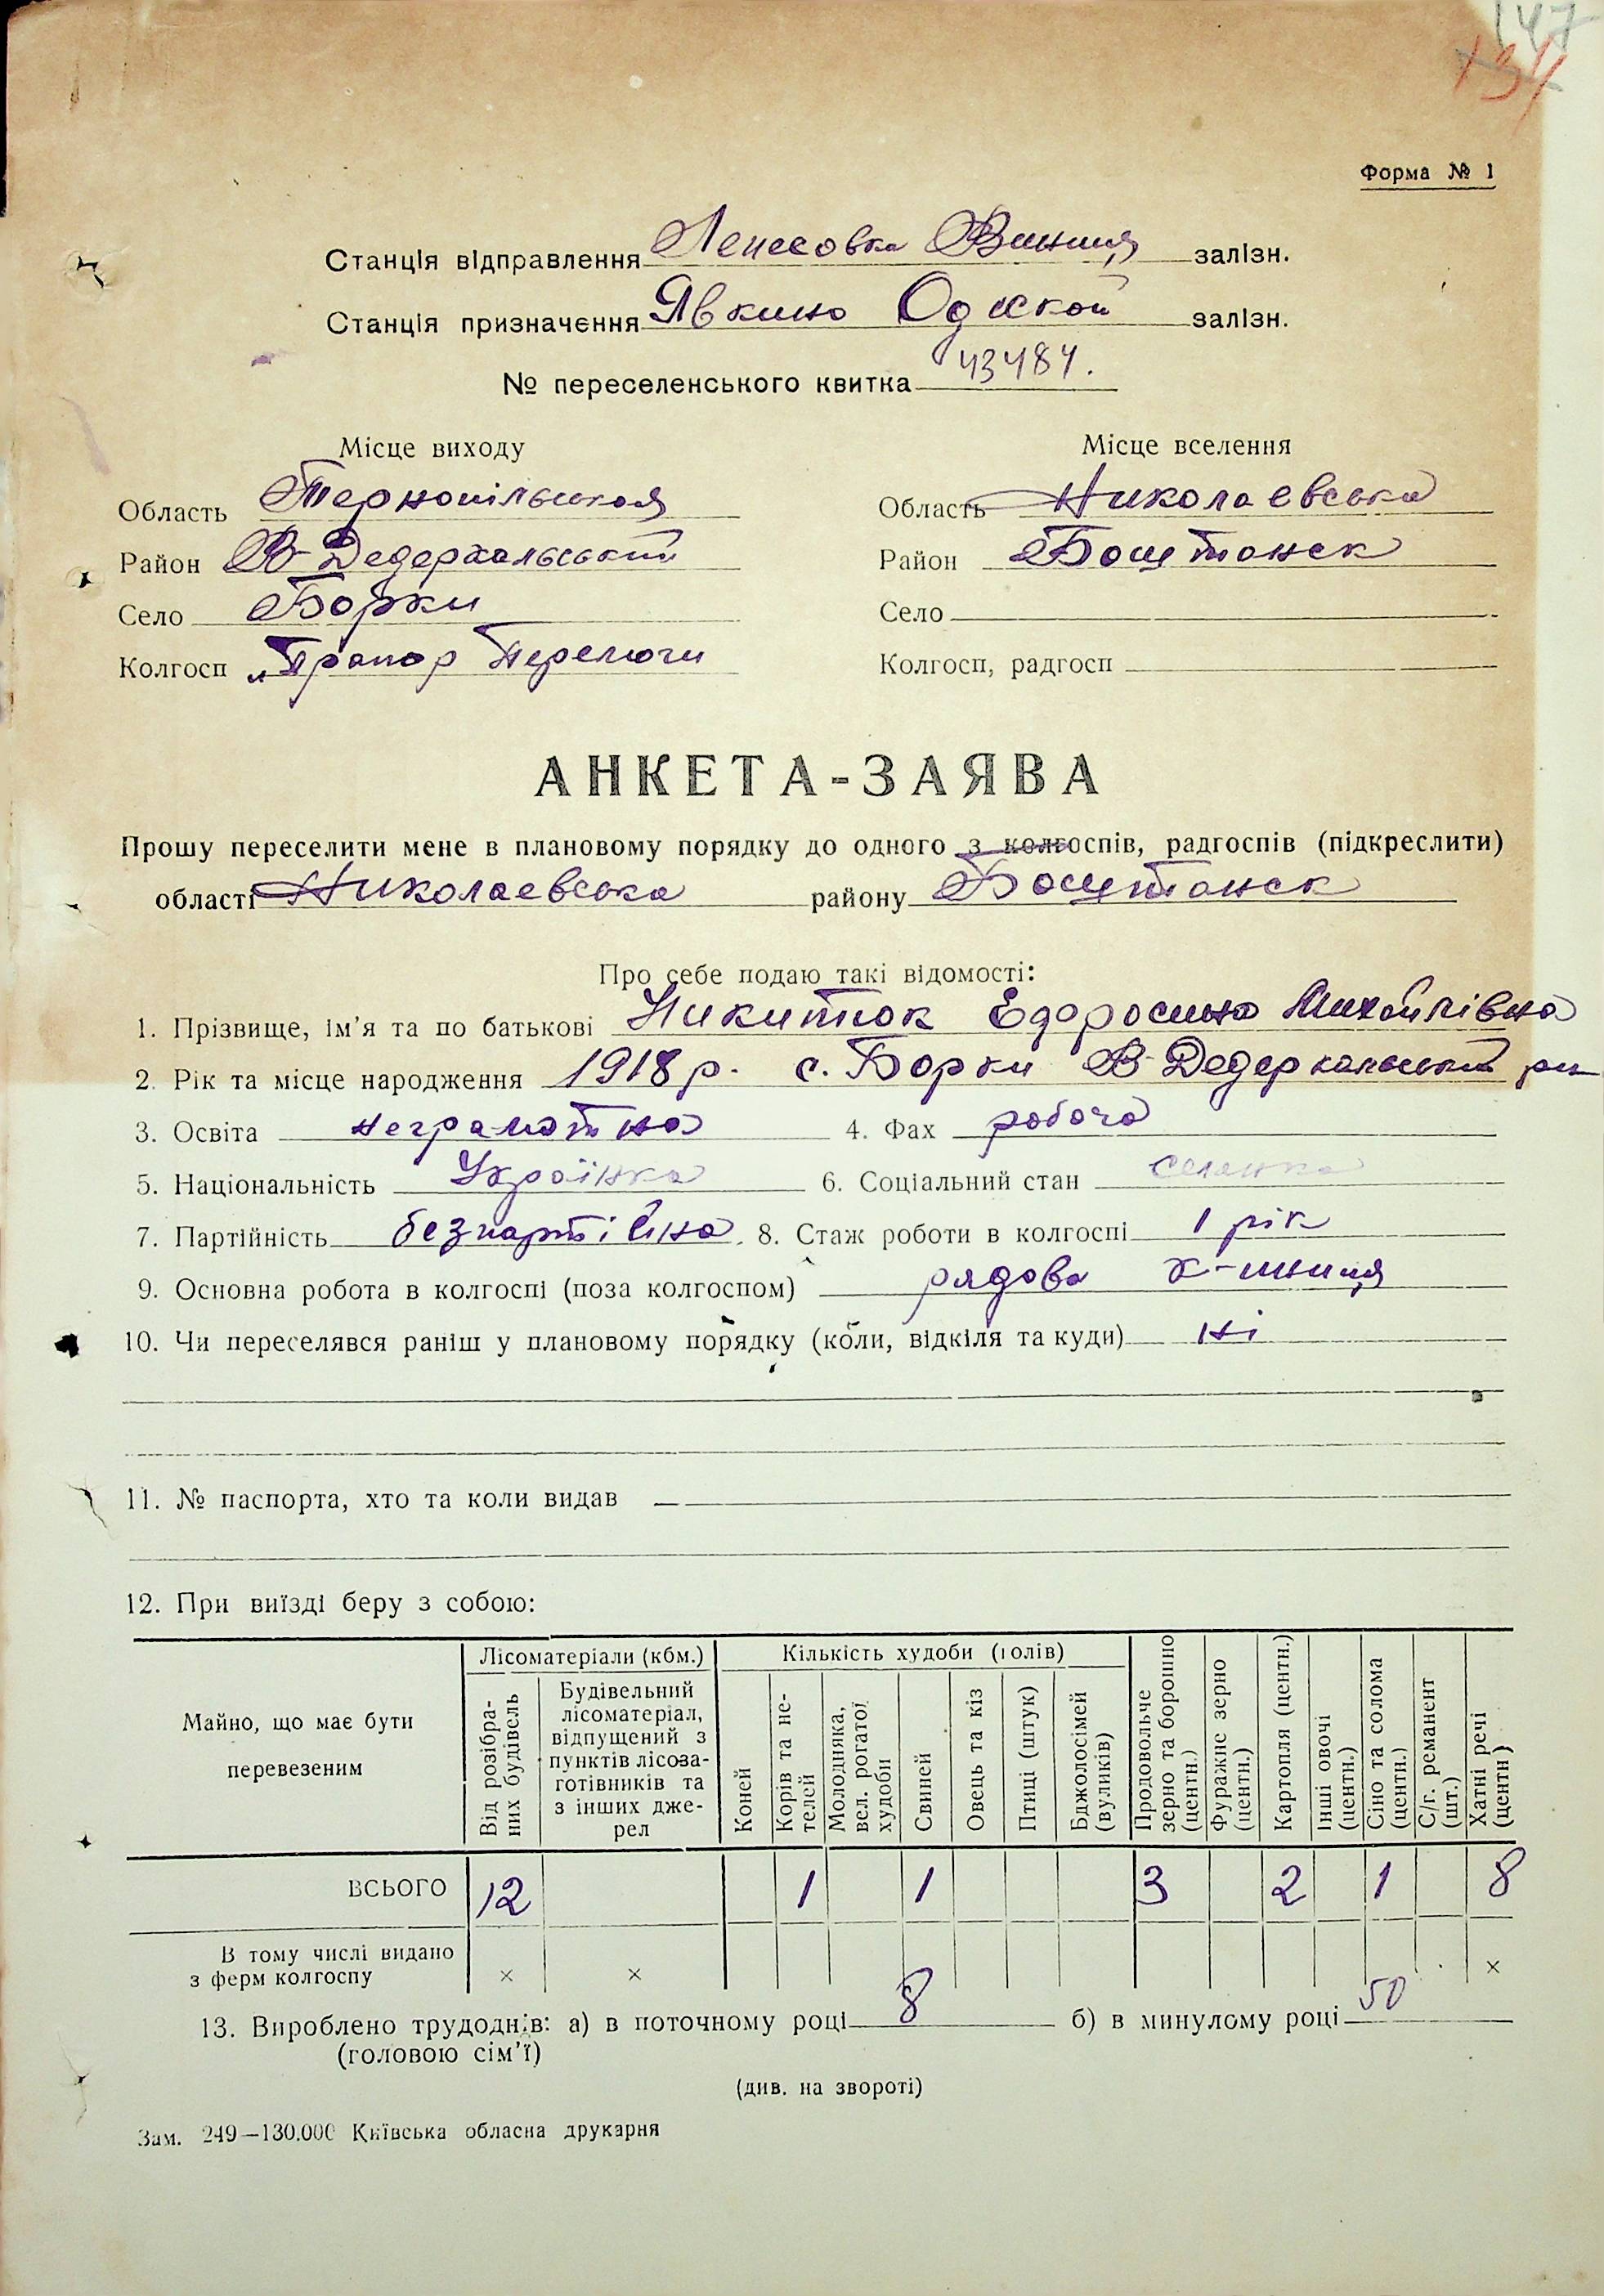 147
134
Форма № 1
Станція відправлення Лепесовка Винниця залізн.
Станція призначення Явкино Одеской залізн.
№ переселенського квитка 43484.
Місце виходу
Область Тернопільская
Район В-Дедеркальський
Село Борки
Колгосп „Прапор Перемоги
Місце вселення
Область Николаевська
Район Боштонск
Село
Колгосп, радгосп
АНКЕТА-ЗАЯВА
Прошу переселити мене в плановому порядку до одного з колгоспів, радгоспів (підкреслити)
області Николаевська району Боштонск
Про себе подаю такі відомості:
1. Прізвище, ім’я та по батькові Никитюк Михайлівна
2. Рік та місце народження 1918 р. с. Борки В-Дедеркальський рн
3. Освіта неграмотна 4. Фах робоча
5. Національність Українка 6. Соціальний стан селянка
7. Партійність безпартійна. 8. Стаж роботи в колгоспі 1 рік
9. Основна робота в колгоспі (поза колгоспом) рядова к-пниця
10. Чи переселявся раніш у плановому порядку (коли, відкіля та куди) ні
11. № паспорта, хто та коли видав —
12. При виїзді беру з собою:
Майно, що має бути перевезеним
Лісоматеріали (кбм.)
Від розібраних будівель
Будівельний лісоматеріал, відпущений з пунктів лісозаготівників та з інших джерел
Кількість худоби (голів)
Коней
Корів та нетелей
Молодняка, вел. рогатої худоби
Свиней
Овець та кіз
Птиці (штук)
Бджолосімей (вуликів)
Продовольче зерно та борошно (центн.)
Фуражне зерно (центн.)
Картопля (центн.)
Інші овочі (центн.)
Сіно та солома (центн.)
С/г. реманент (шт.)
Хатні речі (центн)
ВСЬОГО 12 1 1 3 2 1 8
В тому числі видано з ферм колгоспу × × ×
13. Вироблено трудоднів: а) в поточному році 8 б) в минулому році 50
(головою сім’ї)
(див. на звороті)
Зам. 249—130.000 Київська обласна друкарня